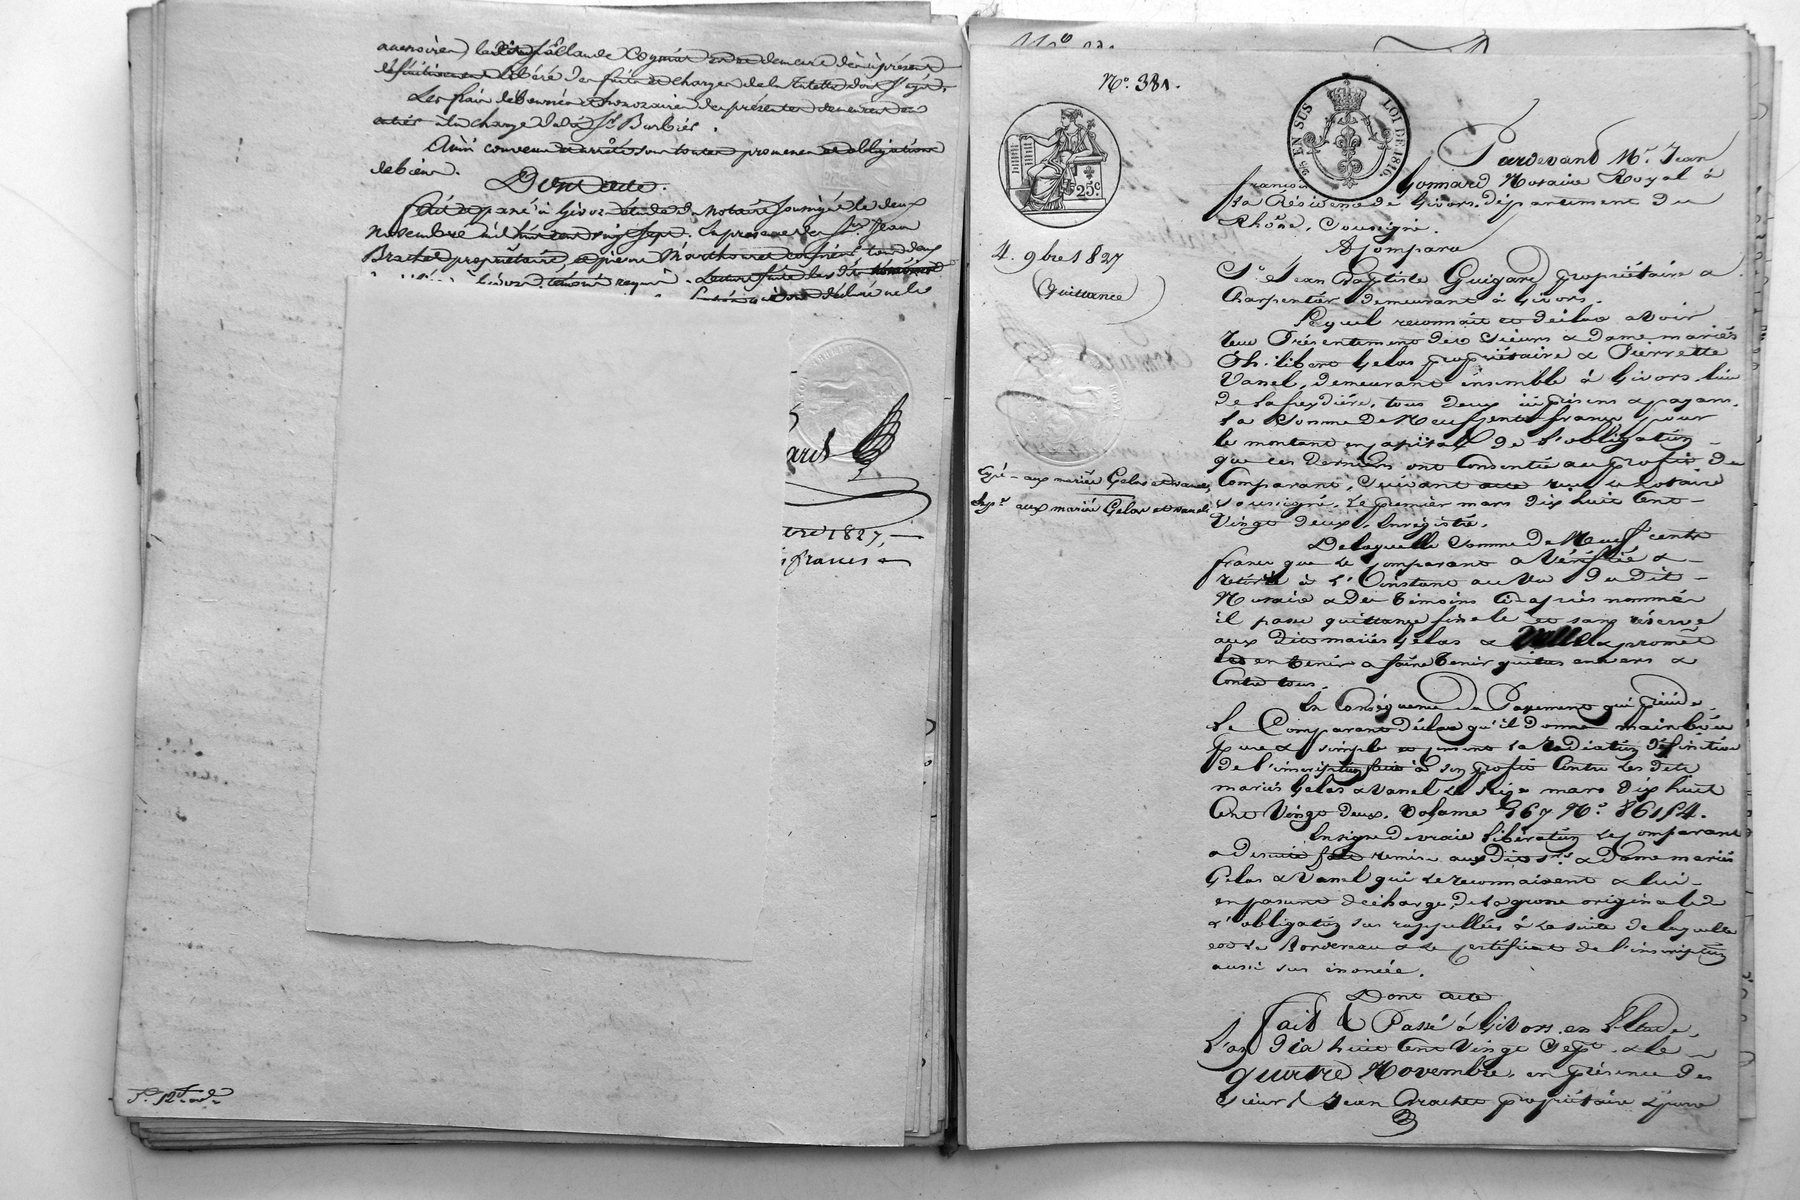 Les frais déboursés et honoraires des présentes demeurent en
à la charge dudit Sr. Barbier.
Ainsi convenu et arrêté sous toutes promesses et obligations
de bien.
Dont acte.
fait et passé à Givors étude du Notaire soussigné le deux
novembre mil huit cent vingt sept. En présence des Srs. Jean
Brachet propriétaire, et pierre
déclaré ne le
1827,
francs
No. 381.
EN SUS
LOI DE 1816.
25c
4. 9bre 1827
Quittance
Expé - aux mariés Gelas et vanel
Exp. aux mariés Gelas et vanel
Pardevant Me. Jean
françois Gonnard Notaire Royal à
La Résidence de Givors, département du
Rhône, Soussigné.
A Comparu
Sr. Jean Baptiste Guigard propriétaire &
Charpentier demeurant à Givors.
Lequel reconnait et déclare avoir
reçu Présentement des Sieurs & Dame mariés
Philibert Gelas propriétaire & Pierrette
Vanel, demeurant ensemble à Givors, lieu
de la freydière, tous deux ici présens & payans,
La Somme de Neuf Cents francs pour
le montant en capital de l'obligation
que ces Derniers ont Consentie au profit du
Comparant, Suivant acte reçu le notaire
soussigné, le premier mars dix huit Cent
Vingt deux, Enregistré.
De laquelle Somme de Neuf cents
francs que le Comparant a Vérifiée &
retirée à l'Instant au Vu dudit
Notaire & des témoins Ci-après nommés
il passe quittance finale et sans réserve
aux Dits mariés Gelas & Vanel & promet
les en tenir & faire tenir quittes envers &
Contre tous.
En Conséquence du Payement qui précède,
Le Comparant déclare qu'il donne mainlevée
pure & simple et consent la Radiation définitive
de l'inscription faite à son profit Contre les dits
mariés Gelas & Vanel le Seize mars dix huit
Cent Vingt deux, Volume 367 No. 86154.
En signe de vraie libération le Comparant
a de suite fait remise aux Dits Srs. & Dame mariés
Gelas & Vanel qui le reconnaissent & lui
en passent décharge, de la grosse originale de
l'obligation sus rappellée à la suite de laquelle
est le Bordereau & le Certificat de l'inscription
aussi sus énoncée.
Dont acte
fait & Passé à Givors en l'Etude,
L'an dix huit Cent Vingt Sept & le
quatre Novembre, en présence des
Sieurs Jean Brachet propriétaire &